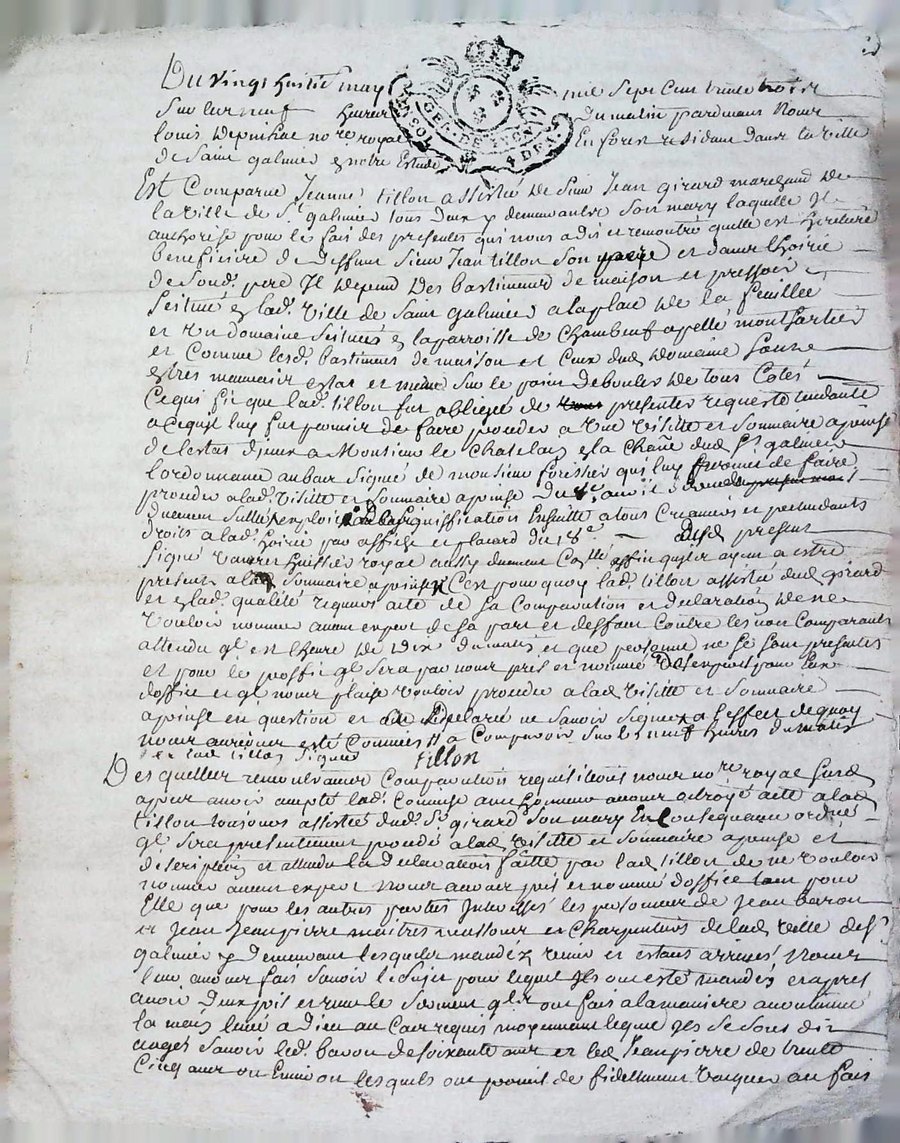 Du vingt huitie may mil sept cent trente trois
Sur les neuf heures Du matin pardevant Nous
louis Depinhac no.re royal En forest residant dans la ville
de Saint galmier & notre Estude
GEN. DE LION 4 DEN.
Est Comparue Jeanne tillon assistée de Sieur Jean girard marchand de
la ville de S.t galmier tous Deux y demeurantes Son mary laquelle Il
authorise pour le fait des presentes qui nous a dit et remontré quelle est heritiere
beneficiere de deffunt Sieur Jean tillon Son pere et dans lhoirie
de Sond. pere Il depend Des bastiments de maison et pressoir
Scitués & lad. ville de Saint galmier a la place de la feuillee
et Un domaine Scitués & la parroisse de Chambeuf apellé
et Comme lesd. bastiments de maison et Ceux dud domaine Sont
& tres mauvais estat et meme Sur le point de de tous Cotés
Ce qui fit que lad. tillon fut obligée de presenter requeste tendante
a Ce quil luy fut permis de faire proceder a Une visitte et Sommaire aprinse
de lestat dyceux a Monsieur le Chatelain & la dud S.t galmier
lordonnance au bas Signée de monsieur qui luy permet de faire
proceder a lad. visitte et Sommaire aprinse Du
Ensuitte a tous Creanciers et pretendants
droits a lad. hoirie par affiche et placard du 18.e present
Signé huissier royal aussy duement affin quils ayent a estre
presents a lad Sommaire aprinse C'est pourquoy lad. tillon assistée dud girard
et & lad. qualité requiert acte de Sa Comparution et declaration de ne
vouloir nommer aucun expert de Sa part et deffaut Contre les non Comparants
attendu ql est lheure de dix du matin et que personne ne Se Sont presentés
et pour le proffit ql Sera par nous pris et nommé Des experts pour Eux
doffice et ql nous plaise vouloir proceder a lad visitte et Sommaire
aprinse en question et a Declaré ne Savoir Signer a leffect de quoy
nous a Comparoir Sur les neuf heures du matin
et lad tillon Signée tillon
Desquelles remontrances Comparutions requisitions nous no.re royal Susd
apres avoir accepté lad. Commise avec honneur avons octroyé acte a lad
tillon toujours assistée dud. S.r girard Son mary En Consequence ordonné
ql Sera presentement procedé a lad visitte et Sommaire aprinse et
description et attendu la Declaration faitte par lad tillon de ne vouloir
nommer aucun expert Nous avons pris et nommé doffice tant pour
Elle que pour les autres parties Interessés les personnes de Jean baron
et Jean Jeanpierre maitres massons et Charpentiers de lad. ville de S.t
galmier y Demeurant lesquels mandés venir et estans arrivés Nous
leur avons fait Savoir le Sujet pour lequel Ils ont esté mandés et apres
avoir Deux pris et receu le Serment qls ont fait a la maniere accoutumée
la main levée a Dieu au Cas requis moyennant lequel Ils Se Sont dit
aagés Savoir led. baron de Soixante ans et led Jeanpierre de trente
Cinq ans ou Environ lesquels ont promis de fidellement vacquer au fait